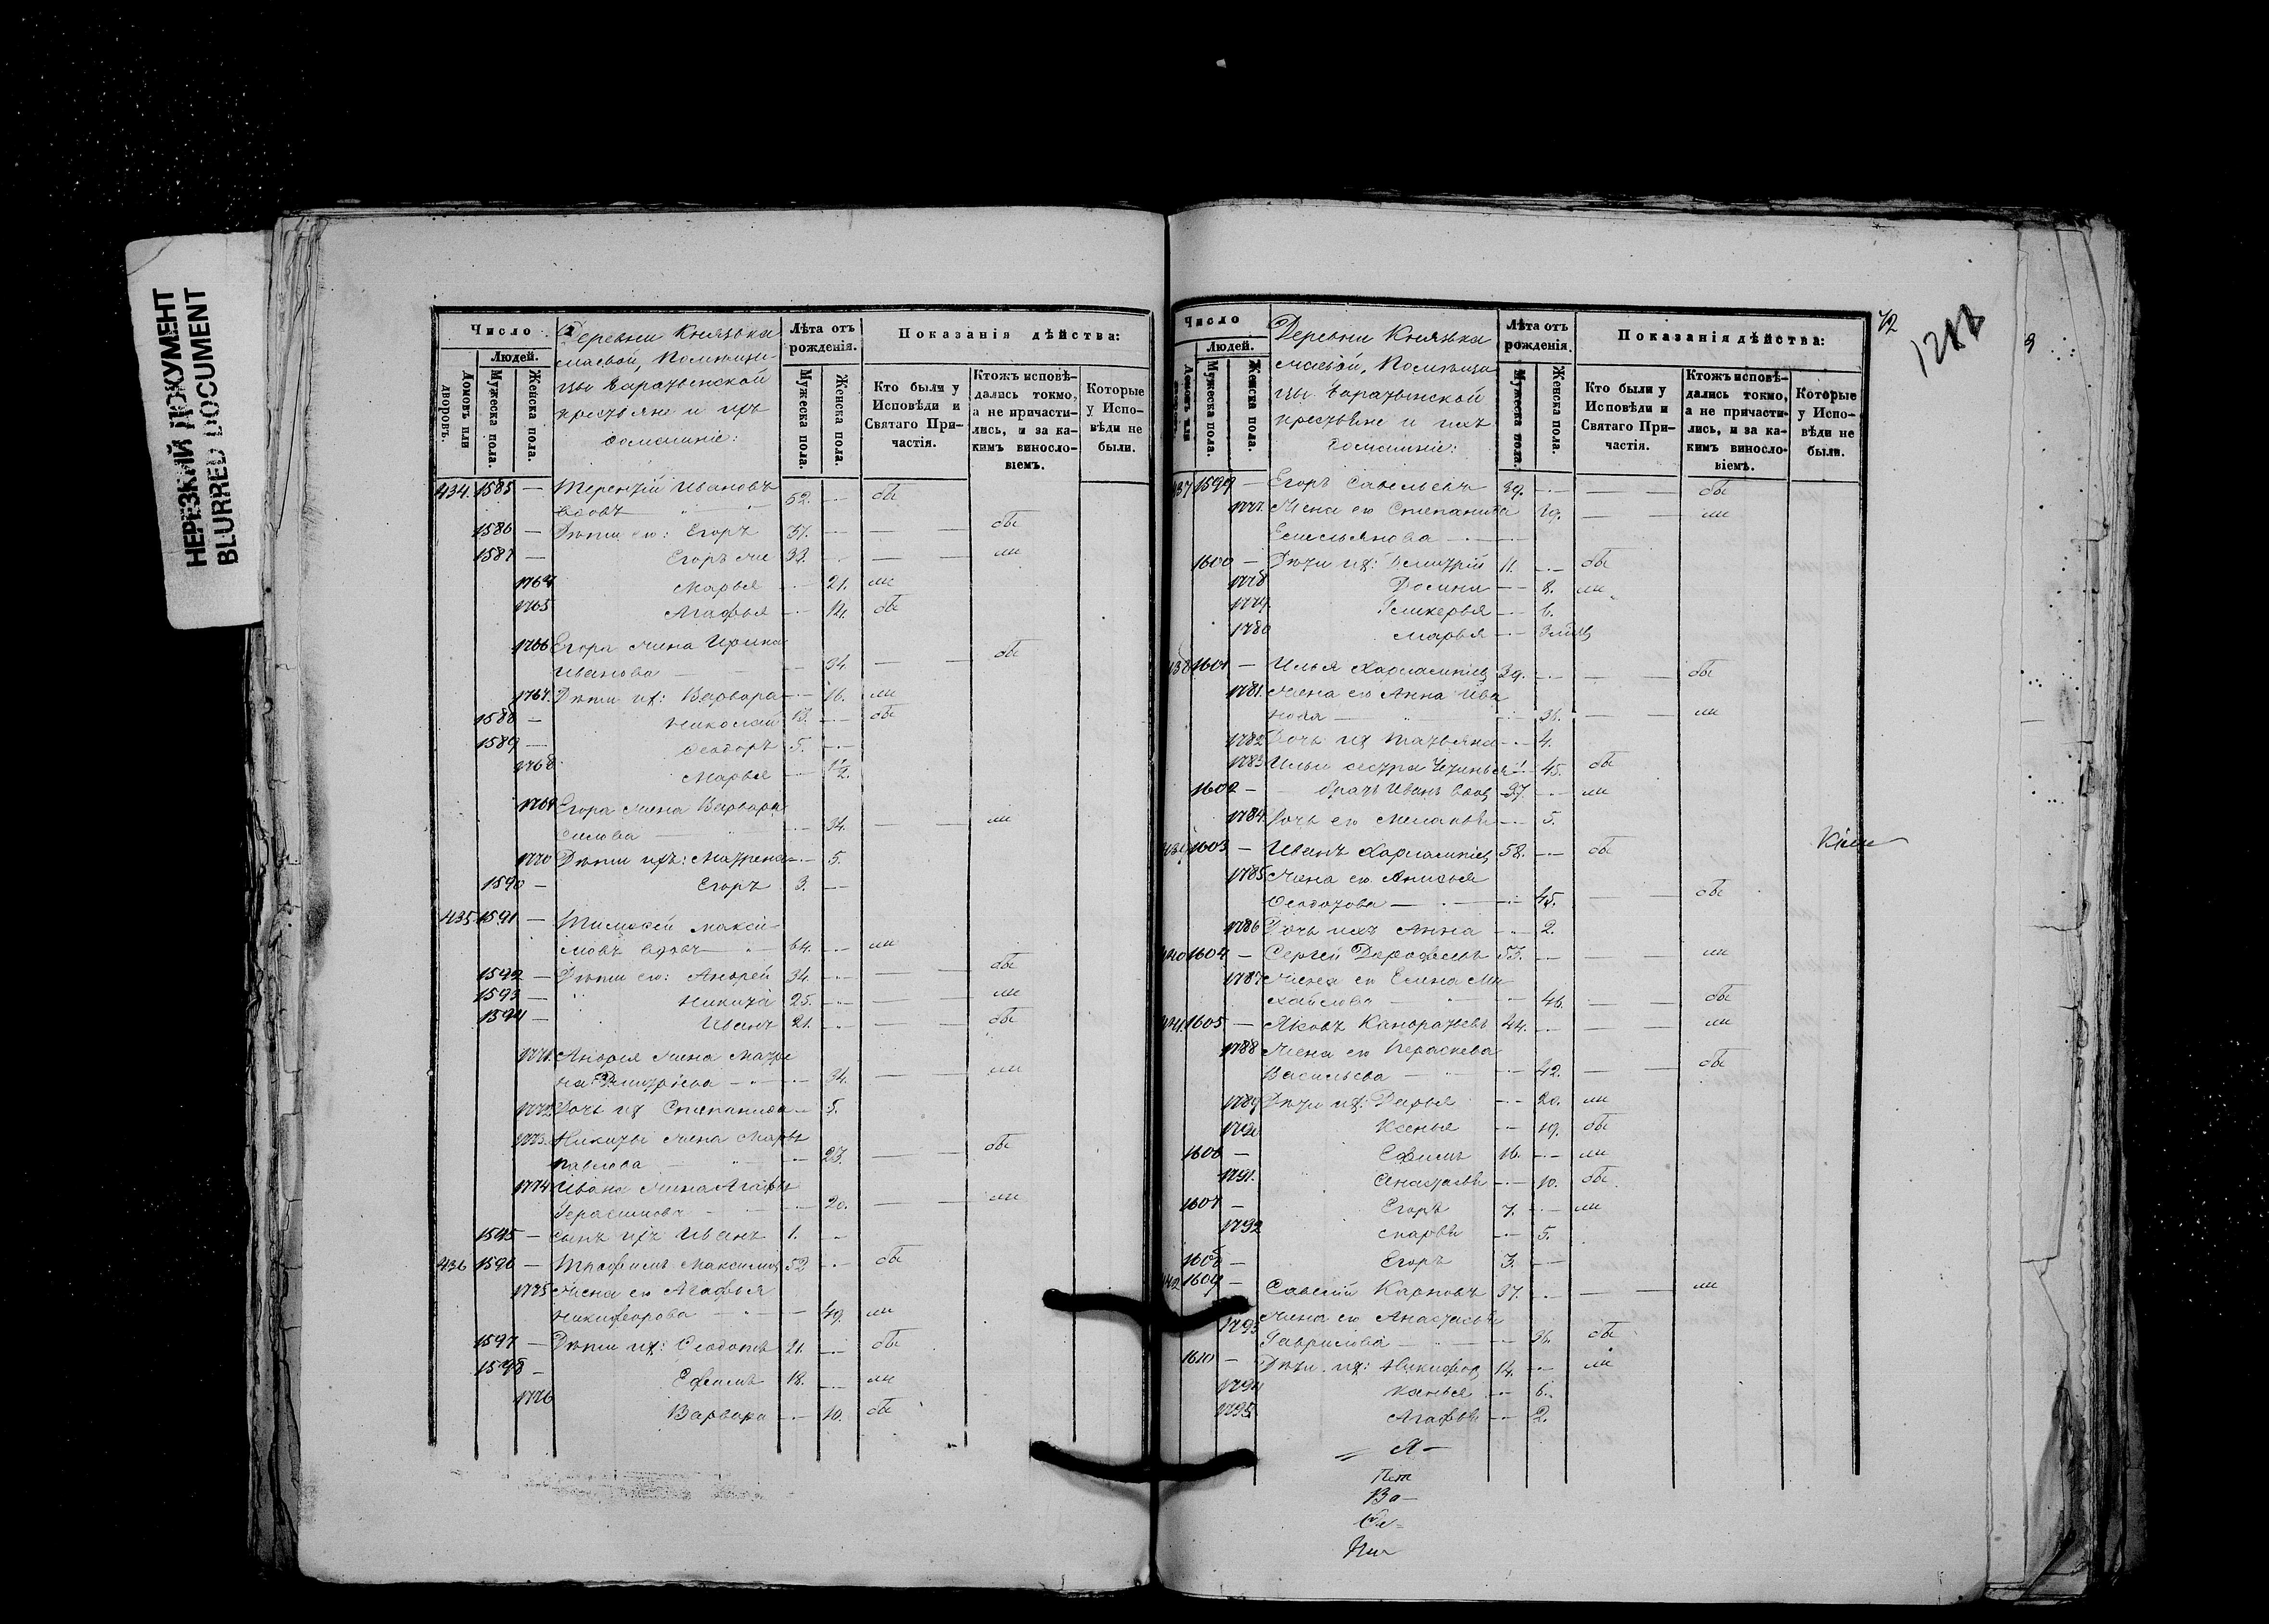 НЕРЕЗКИЙ ДОКУМЕНТ
BLURRED DOCUMENT
Число
Людей.
Домовъ или дворовъ.
Мужеска пола.
Женска пола.
Деревни Князька
маевой, Помѣщи-
цы
крестьяне и ихъ
домашніе:
Лѣта отъ рожденія.
Мужеска пола.
Женска пола.
Показанія дѣйства:
Кто были у Исповѣди и Святаго Причастія.
Ктожъ исповѣ-дались токмо, а не причасти-лись, и за ка-кимъ винослo-віемъ.
Которые у Испо-вѣди не были.
434. 1585 — Терентій Ивановъ
вдовъ 52. — бы
1586 — Дѣти его: Егоръ 37. — бы
1587 — Егоръ же 33. — ли
1764 Марья — 21. ли
1765 Агафья — 14. бы
1766 Егора жена Ирина
Иванова — 34 — бы
1767. Дѣти ихъ: Варвара — 16. ли
1588 — Николай 13. — бы
1589 — Ѳеодоръ 5. —
1768 Марья — 1/2.
1769 Егора жена Варвара
Силова — 34. — ли
1770 Дѣти ихъ: Матрена — 5.
1590 — Егоръ 3. —
435. 1591 — Тимоѳей Макси-
мовъ вдовъ — 64. — ли
1592 — Дѣти его: Андрей 34. — бы
1593 — Никита 25. — ли
1594 — Иванъ 21. — бы
1771. Андрея жена Матре
на Дмитріева — 34. — ли
1772. Дочь их Степанида — 5.
1773. Никиты жена Марья
Павлова — 23. — бы
1774 Ивана жена Агафья
Герасимова — 20. — ли
1595 — Сынъ ихъ Иванъ 1. —
436 1596 — Трофимъ Максимов 52 — бы
1775 Жена его Агафья
Никифорова — 49. ли
1597 — Дѣти их: Ѳеодотъ 21. — бы
1598 — Ефимъ 18. — ли
1776 Варвара — 10. бы
72
Число
Людей.
Домовъ или
Мужеска пола.
Женска пола.
Деревни Князька
маевой, Помѣщи
цы
крестьяне и ихъ
домашніе:
Лѣта отъ рожденія.
Мужеска пола.
Женска пола.
Показанія дѣйства:
Кто были у Исповѣди и Святаго При-частія.
Ктожъ исповѣ-дались токмо, а не причасти-лись, и за ка-кимъ винослo-віемъ.
Которые у Испо-вѣди не были.
437 1599 — Егоръ Савельевъ 39. — бы
1777. Жена его Степанида 39. — ли
Емельянова —
1600 — Дѣти их: Дмитрій 11. — бы
1778 Домна — 8. ли
1779. Гликерья — 6.
1780 Марья — 3 мѣс
438 1601 — Илья Харлампіев 39. — бы
1781. Жена его Анна Ива
нова — 36. — ли
1782 Дочь их Татьяна — 4.
1783 Ильи сестра — 45. бы
1602 — братъ Иванъ вдов 37. — ли
1784. Дочь его Меланья — 5.
439 1603 — Иванъ Харлампіев 58. — бы
1785 Жена его Анисья
Ѳеодотова — 45. — бы
1786 Дочь ихъ Анна — 2.
440 1604 — Сергей Дорофеевъ 53. — ли
1787 Жена его Елена Ми
хайлова — 46. — бы
441. 1605 — Яковъ Кондратьевъ 44. — ли
1788 Жена его Параскева
Васильева — 42. — бы
1789 Дѣти их: Дарья — 20. ли
1790 Ксенья — 19. бы
1606 — Ефимъ 16. — ли
1791. Анастасья — 10. бы.
1607 — Егоръ 7. — ли
1792 Марья — 5.
1608 — Егоръ 3. —
442 1609 — Савелій Карповъ 37. — ли
1793 Жена его Анастасья
Гаврилова — 36. бы
1610 — Дѣти их: Никифор 14. — ли
1794 — 6.
1795. Агафья — 2.